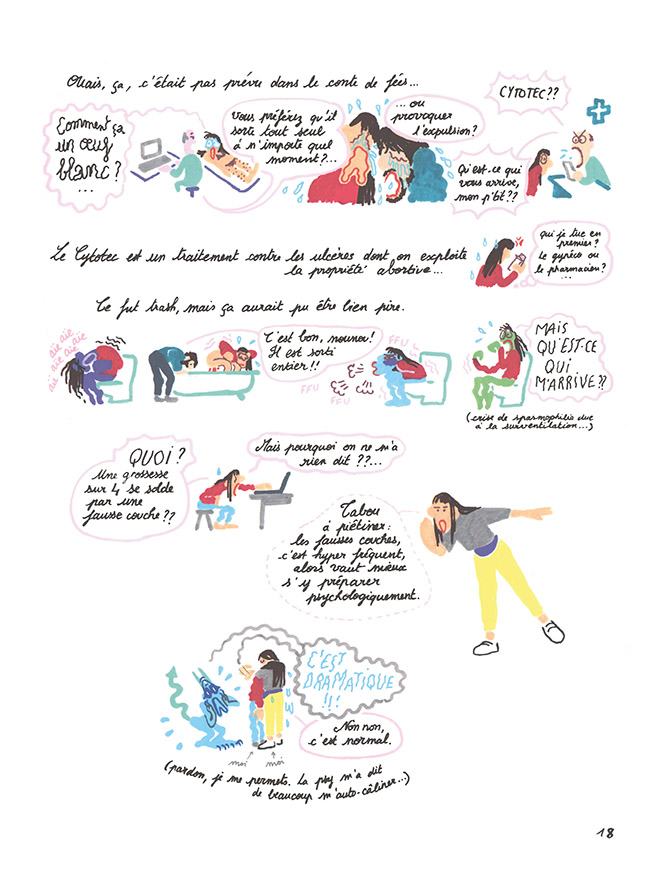 Ouais, ça, c'était pas prévu dans le conte de fées...
Comment ça
un œuf
blanc ?
...
Vous préférez qu'il
sorte tout seul
à n'importe quel
moment ?...
... ou
provoquer
l'expulsion ?
CYTOTEC ??
Qu'est-ce qui
vous arrive,
mon p'tit ??
Le Cytotec est un traitement contre les ulcères dont on exploite
la propriété abortive...
qui je tue en
premier ?
Le gynéco ou
le pharmacien ?
...
Ce fut trash, mais ça aurait pu être bien pire.
aïe aïe
aïe aïe aïe
aïe
C'est bon, nounou !
Il est sorti
entier !!
FFU
FFU
FFU
MAIS
QU'EST-CE
QUI
M'ARRIVE ??
(crise de spasmophilie due
à la surventilation...)
QUOI ?
Une grossesse
sur 4 se solde
par une
fausse couche ??
Mais pourquoi on ne m'a
rien dit ??...
Tabou
à piétiner :
les fausses couches,
c'est hyper fréquent,
alors vaut mieux
s'y préparer
psychologiquement.
C'EST
DRAMATIQUE
!!!
Non non,
c'est normal.
moi
moi
(pardon, je me permets. La psy m'a dit
de beaucoup m'auto-câliner...)
18